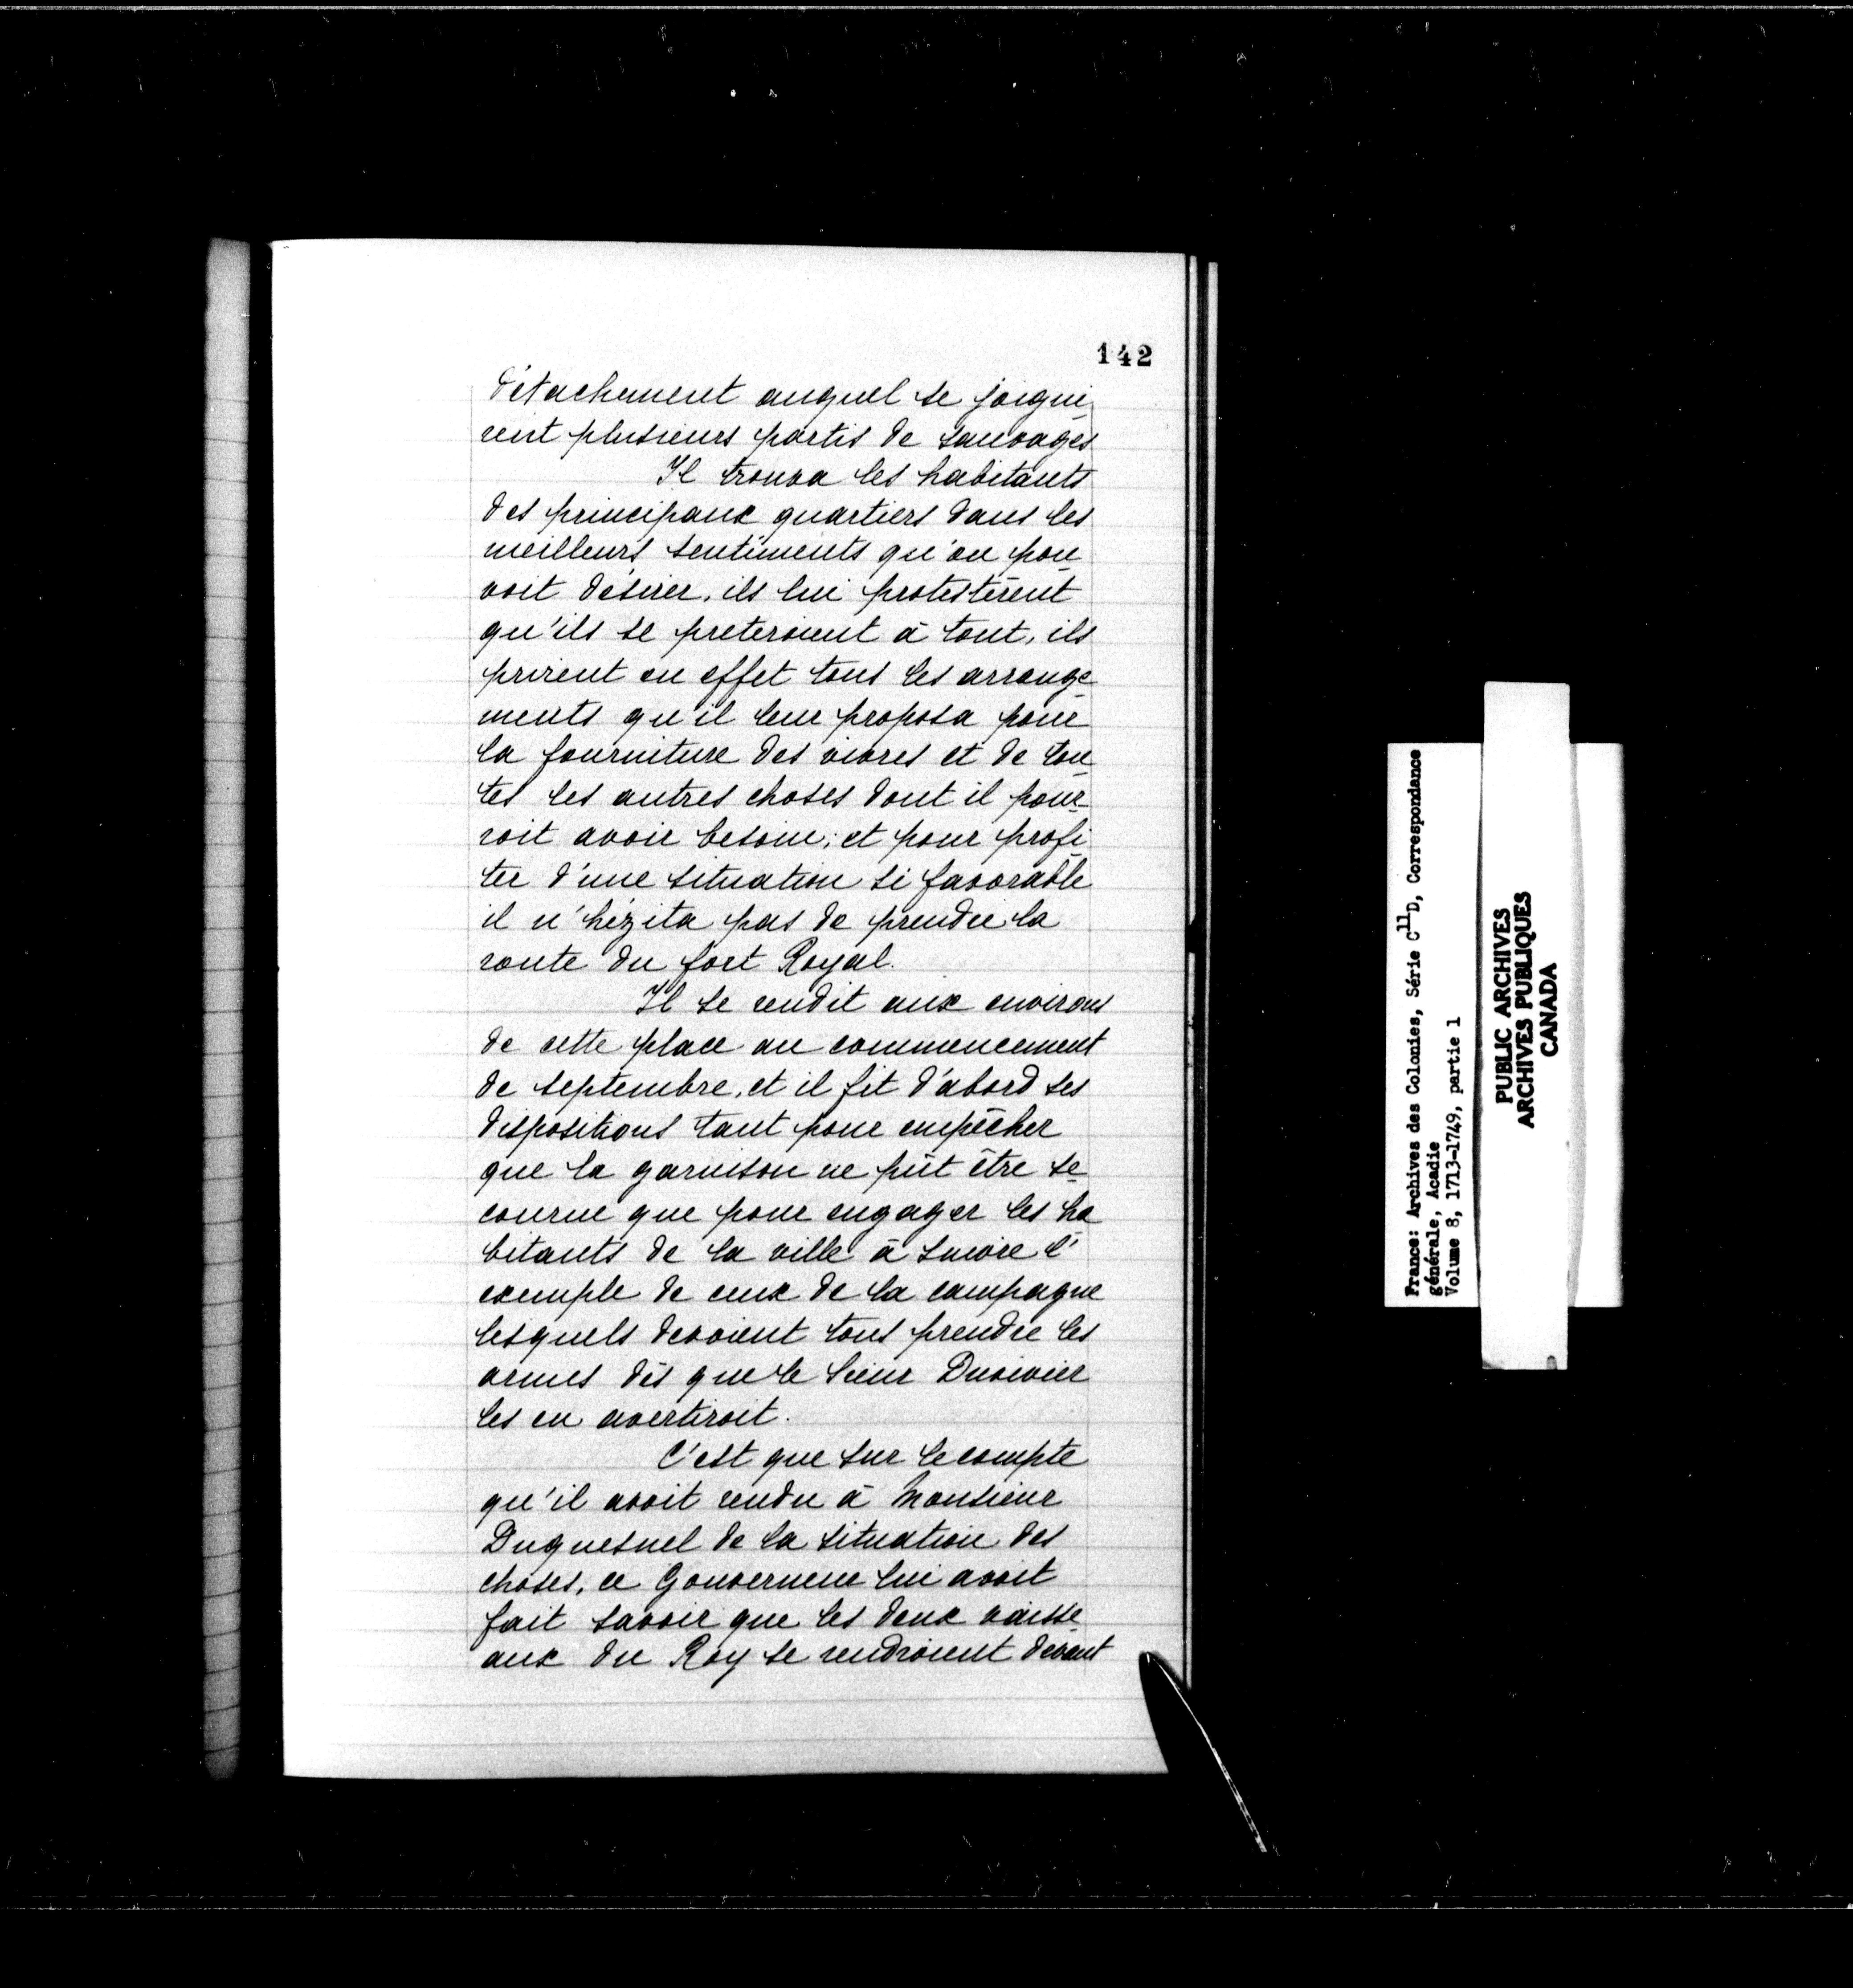 142
détachement auquel se joigni-
rent plusieurs partis de sauvages
Il trouva les habitants
des principaux quartiers dans les
meilleurs sentiments qu'on pou-
voit désirer, ils lui protestèrent
qu'ils se preteroient à tout, ils
prirent en effet tous les arrange-
ments qu'il leur proposa pour
la fourniture des vivres et de tou-
tes les autres choses dont il pour-
roit avoir besoin; et pour profi-
ter d'une situation si favorable
il n'hézita pas de prendre la
route du fort Royal.
Il se rendit aux environs
de cette place au commencement
de septembre, et il fit d'abord ses
dispositions tant pour empêcher
que la garnison ne pût être se-
courue que pour engager les ha-
bitants de la ville à suivre l'
exemple de ceux de la campagne
lesquels devoient tous prendre les
armes dès que le Sieur Duvivier
les en avertiroit.
C'est que sur le compte
qu'il avoit rendu à Monsieur
Duquesnel de la situation des
choses, ce Gouverneur lui avoit
fait savoir que les deux vaisse-
aux du Roy se rendroient devant
France: Archives des Colonies, Série C11D, Correspondance
générale, Acadie
Volume 8, 1713-1749, partie 1
PUBLIC ARCHIVES
ARCHIVES PUBLIQUES
CANADA